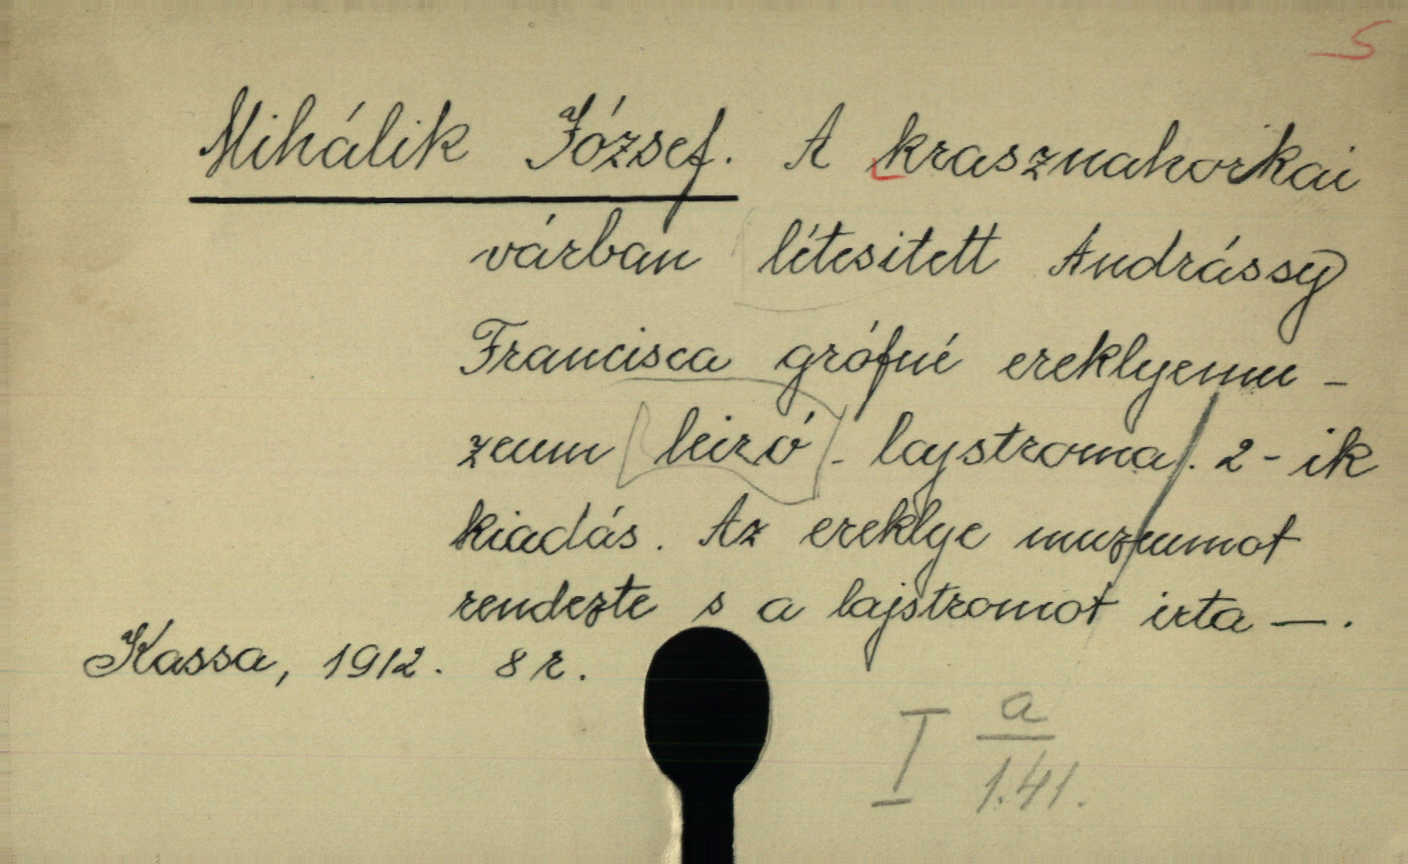 5
Mihálik József. A krasznahorkai
várban létesitett Andrássy
Francisca grófné ereklyemu-
zeum leiró-lajstroma. 2-ik
kiadás. Az ereklye muzeumot
rendezte s a lajstromot irta —.
Kassa, 1912. 8 r.
I a
1.41.